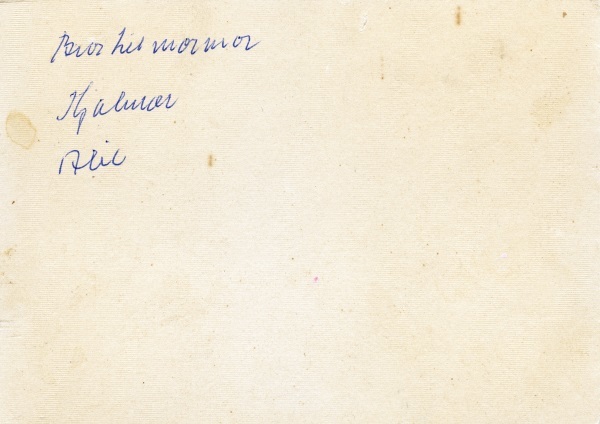 Bror till mormor
Hjalmar